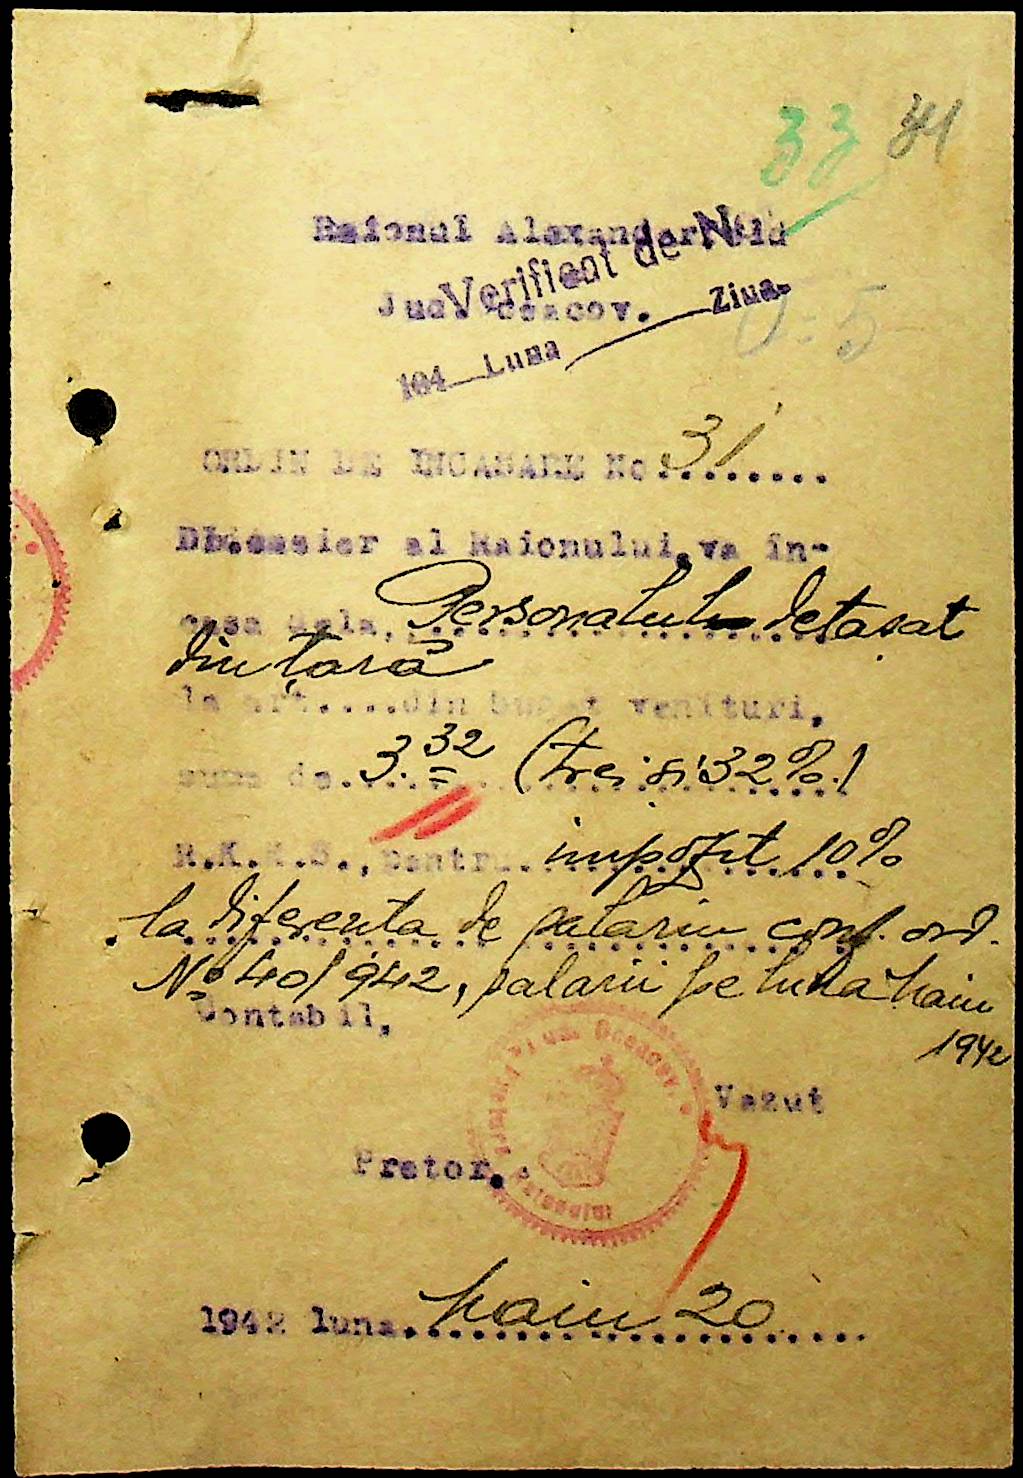 33 31
Raionul Alexanderfeld
Verificat de N
Jud. Oceacov.
Ziua
194 Luna
ORDIN DE INCASARE No. 31
Dl.Casier al Raionului, va în-
casa dela, Personalul detasat
din țară
la art....din buget venituri,
suma de. 3.32 (trei și 32%)
R.K.K.S., pentru impozit 10%
la diferenta de salariu conf. ord.
No 40/942, salarii pe luna Maiu
1942
Contabil,
Vazut
Pretor.
1942 luna. Maiu 20